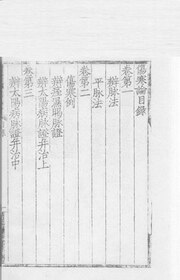 傷寒論目錄
卷第一
辨脉法
平脉法
卷第二
傷寒例
辨痓濕暍脉證
辨太陽病脉證并治上
卷第三
辨太陽病脉證并治中